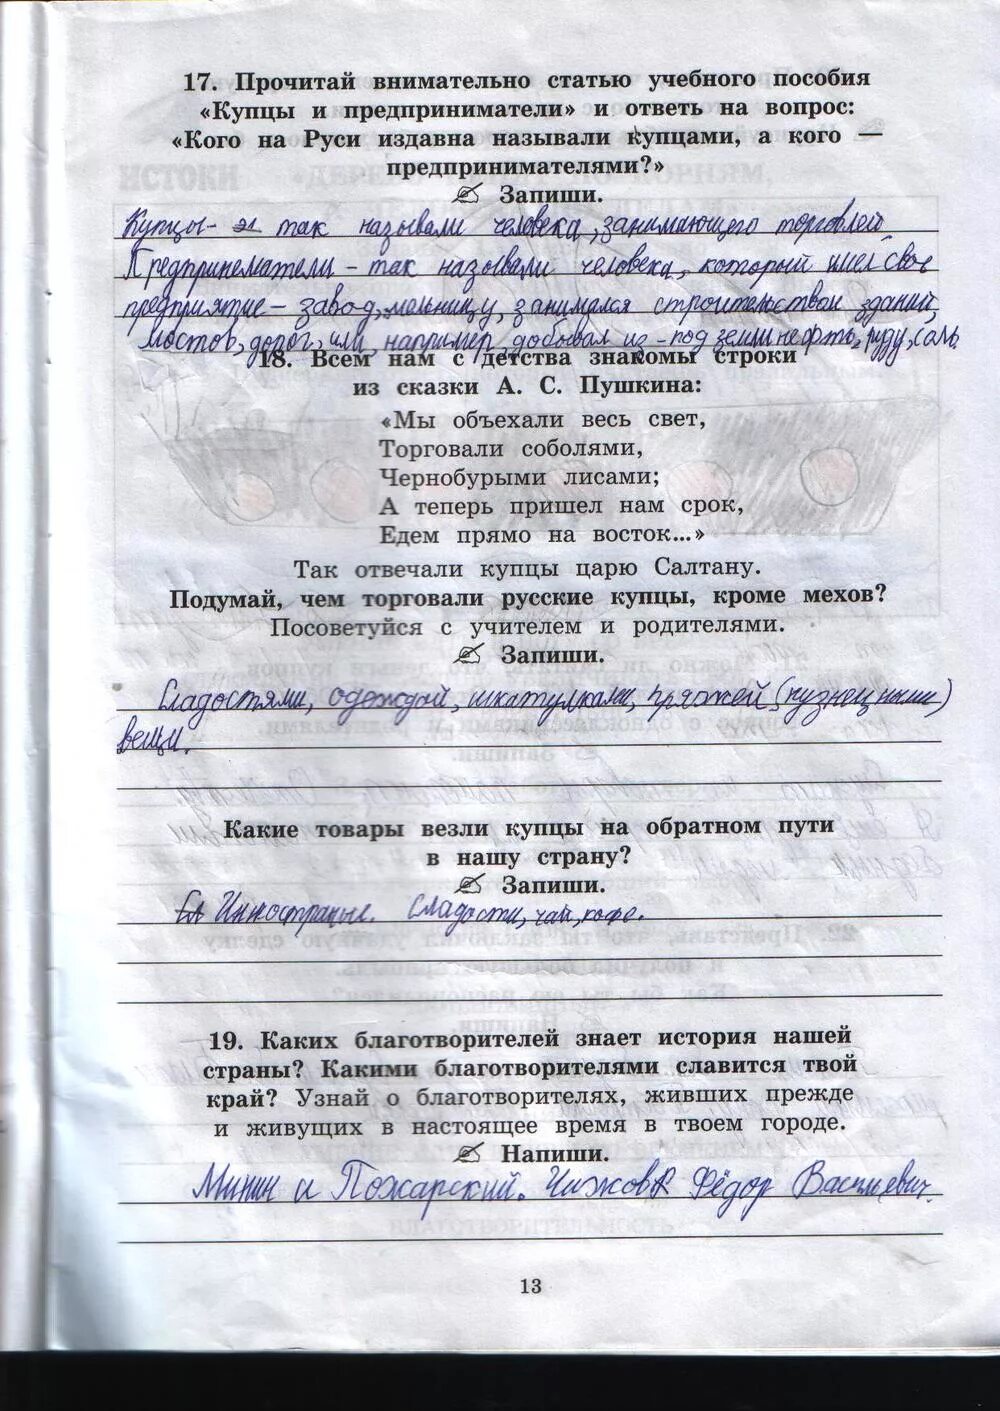 17. Прочитай внимательно статью учебного пособия
«Купцы и предприниматели» и ответь на вопрос:
«Кого на Руси издавна называли купцами, а кого —
предпринимателями?»
Запиши.
Купцы - так называли человека, занимающего торговлей.
Предпринематели - так называли человека, который имел своё
предприятие - завод, мельницу, занимался строительством зданий,
мостов, дорог, или, например, добывал из-под земли нефть, руду, соль.
18. Всем нам с детства знакомы строки
из сказки А. С. Пушкина:
«Мы объехали весь свет,
Торговали соболями,
Чернобурыми лисами;
А теперь пришел нам срок,
Едем прямо на восток...»
Так отвечали купцы царю Салтану.
Подумай, чем торговали русские купцы, кроме мехов?
Посоветуйся с учителем и родителями.
Запиши.
Сладостями, одеждой, шкатулками, пряжей (кузнецными)
вещи.
Какие товары везли купцы на обратном пути
в нашу страну?
Запиши.
Инностраные. Сладости, чай, кофе.
19. Каких благотворителей знает история нашей
страны? Какими благотворителями славится твой
край? Узнай о благотворителях, живших прежде
и живущих в настоящее время в твоем городе.
Напиши.
Минин и Пожарский. Чижов Фёдор Васильевич.
13